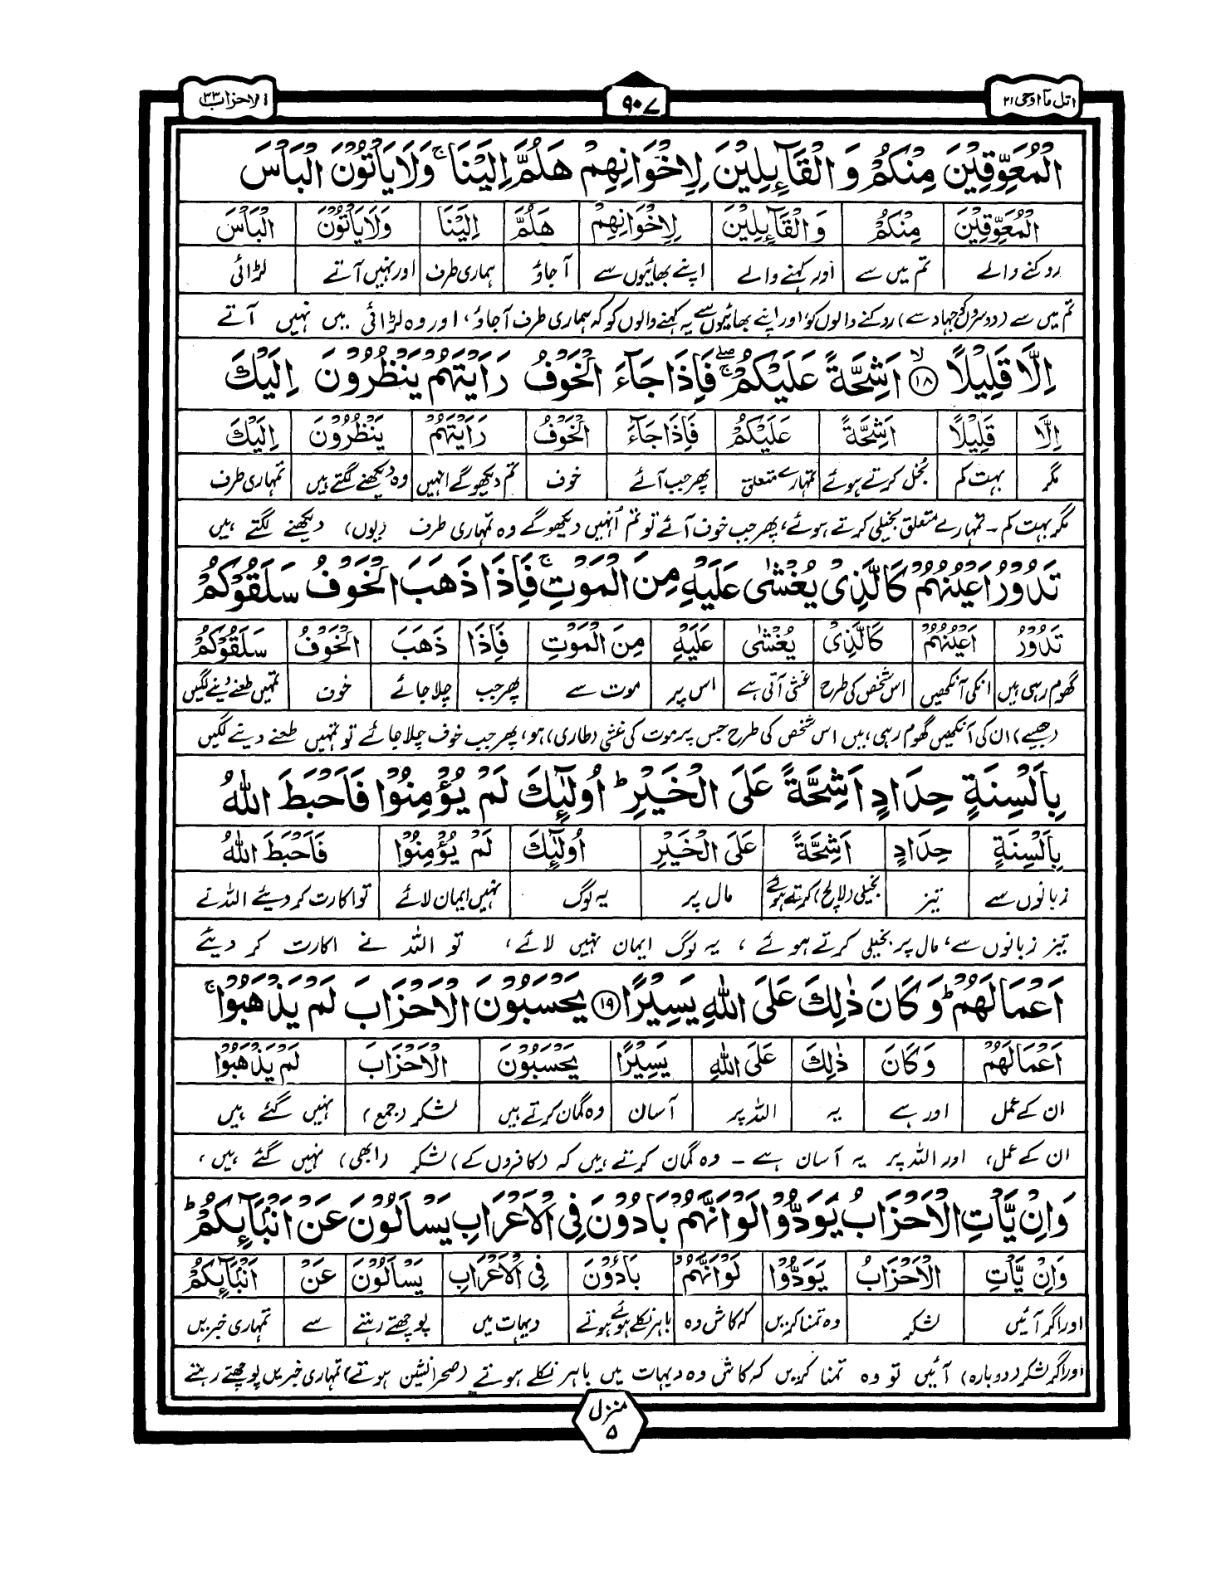 اتل مآ اوحی ۲۱
۹۰۷
الاحزاب ۳۳
الْمُعَوِّقِيْنَ مِنْكُمْ وَ الْقَآئِلِيْنَ لِاِخْوَانِهِمْ هَلُمَّ اِلَيْنَا ۚ وَلَا يَاْتُوْنَ الْبَاْسَ
الْمُعَوِّقِيْنَ مِنْكُمْ وَ الْقَآئِلِيْنَ لِاِخْوَانِهِمْ هَلُمَّ اِلَيْنَا وَلَا يَاْتُوْنَ الْبَاْسَ
روکنے والے تم میں سے اور کہنے والے اپنے بھائیوں سے آجاؤ ہماری طرف اور نہیں آتے لڑائی
تم میں سے (دوسروں کو جہاد سے) روکنے والوں کو اور اپنے بھائیوں سے یہ کہنے والوں کو کہ ہماری طرف آجاؤ، اور وہ لڑائی میں نہیں آتے
اِلَّا قَلِيْلًا ۙ۱۸ اَشِحَّةً عَلَيْكُمْ ۚۖ فَاِذَا جَآءَ الْخَوْفُ رَاَيْتَهُمْ يَنْظُرُوْنَ اِلَيْكَ
اِلَّا قَلِيْلًا اَشِحَّةً عَلَيْكُمْ فَاِذَا جَآءَ الْخَوْفُ رَاَيْتَهُمْ يَنْظُرُوْنَ اِلَيْكَ
مگر بہت کم بخل کرتے ہوئے تمہارے متعلق پھر جب آئے خوف تم دیکھو گے انہیں وہ دیکھنے لگتے ہیں تمہاری طرف
مگر بہت کم۔ تمہارے متعلق بخیلی کرتے ہوئے، پھر جب خوف آئے تو تم اُنہیں دیکھو گے وہ تمہاری طرف (یوں) دیکھنے لگتے ہیں
تَدُوْرُ اَعْيُنُهُمْ كَالَّذِيْ يُغْشٰى عَلَيْهِ مِنَ الْمَوْتِ ۚ فَاِذَا ذَهَبَ الْخَوْفُ سَلَقُوْكُمْ
تَدُوْرُ اَعْيُنُهُمْ كَالَّذِيْ يُغْشٰى عَلَيْهِ مِنَ الْمَوْتِ فَاِذَا ذَهَبَ الْخَوْفُ سَلَقُوْكُمْ
گھوم رہی ہیں انکی آنکھیں اس شخص کی طرح غشی آتی ہے اس پر موت سے پھر جب چلا جائے خوف تمہیں طعنے دینے لگیں
(جیسے) ان کی آنکھیں گھوم رہی ہیں اس شخص کی طرح جس پر موت کی غشی (طاری) ہو، پھر جب خوف چلا جائے تو تمہیں طعنے دینے لگیں
بِاَلْسِنَةٍ حِدَادٍ اَشِحَّةً عَلَى الْخَيْرِ ؕ اُولٰٓئِكَ لَمْ يُؤْمِنُوْا فَاَحْبَطَ اللّٰهُ
بِاَلْسِنَةٍ حِدَادٍ اَشِحَّةً عَلَى الْخَيْرِ اُولٰٓئِكَ لَمْ يُؤْمِنُوْا فَاَحْبَطَ اللّٰهُ
زبانوں سے تیز بخیلی (لالچ) کرتے ہوئے مال پر یہ لوگ نہیں ایمان لائے تو اکارت کر دیئے اللہ نے
تیز زبانوں سے، مال پر بخیلی کرتے ہوئے، یہ لوگ ایمان نہیں لائے، تو اللہ نے اکارت کر دیئے
اَعْمَالَهُمْ ؕ وَ كَانَ ذٰلِكَ عَلَى اللّٰهِ يَسِيْرًا ۱۹ يَحْسَبُوْنَ الْاَحْزَابَ لَمْ يَذْهَبُوْا ۚ
اَعْمَالَهُمْ وَ كَانَ ذٰلِكَ عَلَى اللّٰهِ يَسِيْرًا يَحْسَبُوْنَ الْاَحْزَابَ لَمْ يَذْهَبُوْا
ان کے عمل اور ہے یہ اللہ پر آسان وہ گمان کرتے ہیں لشکر (جمع) نہیں گئے ہیں
ان کے عمل، اور اللہ پر یہ آسان ہے۔ وہ گمان کرتے ہیں کہ (کافروں کے) لشکر (ابھی) نہیں گئے ہیں،
وَ اِنْ يَّاْتِ الْاَحْزَابُ يَوَدُّوْا لَوْ اَنَّهُمْ بَادُوْنَ فِي الْاَعْرَابِ يَسْاَلُوْنَ عَنْ اَنْۢبَآئِكُمْ ؕ
وَ اِنْ يَّاْتِ الْاَحْزَابُ يَوَدُّوْا لَوْ اَنَّهُمْ بَادُوْنَ فِي الْاَعْرَابِ يَسْاَلُوْنَ عَنْ اَنْۢبَآئِكُمْ
اور اگر آئیں لشکر وہ تمنا کریں کہ کاش وہ باہر نکلے ہوئے ہوتے دیہات میں پوچھتے رہتے سے تمہاری خبریں
اور اگر لشکر (دوبارہ) آئیں تو وہ تمنا کریں کہ کاش وہ دیہات میں باہر نکلے ہوتے (صحرا نشین ہوتے) تمہاری خبریں پوچھتے رہتے
منزل
۵